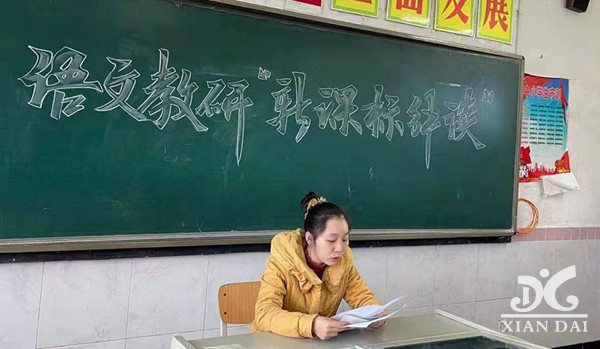 面发展
语文教研“新课标解读”
XIAN DAI